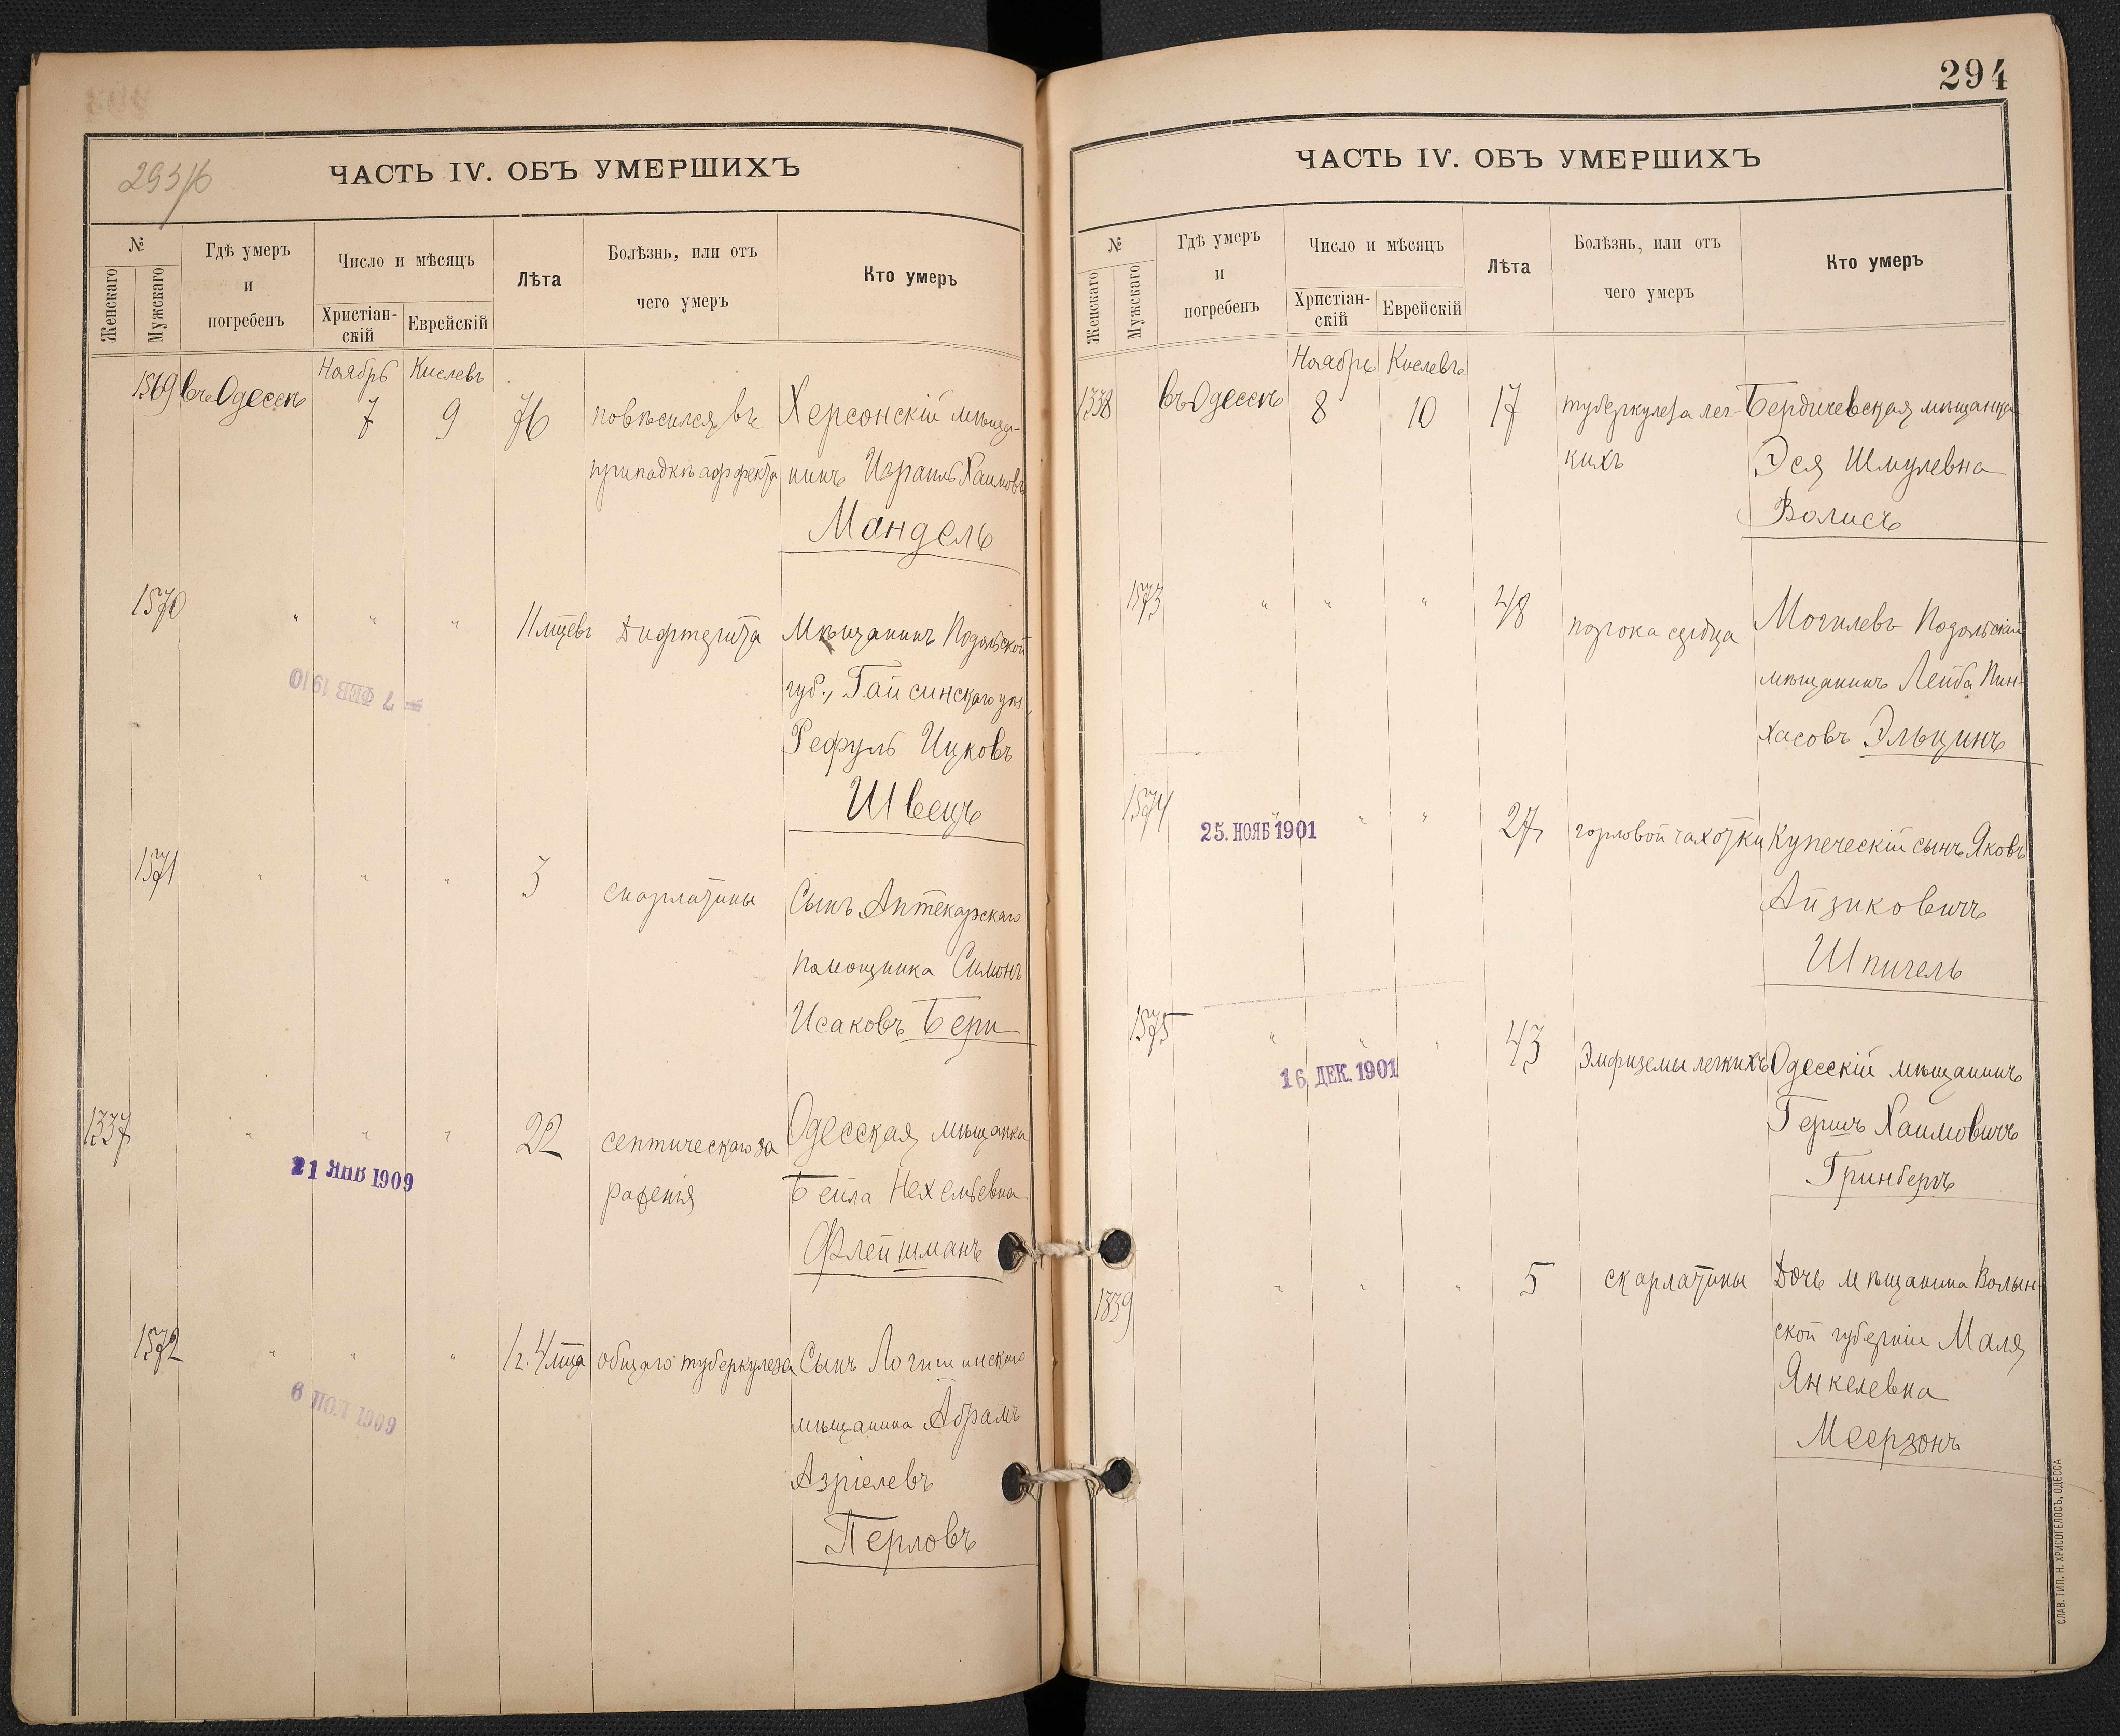 293/б
ЧАСТЬ IV. ОБЪ УМЕРШИХЪ
№
Женскаго
Мужскаго
Гдѣ умеръ
и
погребенъ
Число и мѣсяцъ
Христіан-
скій
Еврейскій
Лѣта
Болѣзнь, или отъ
чего умеръ
Кто умеръ
Ноябрь Кислевъ
1569 въ Одессѣ 7 9 76 повѣсился въ Херсонскій мѣща-
припадкѣ аффекта нинъ Израиль Хаимовъ
Мандель
1570 " " " 11 мцевъ Дифтерита Мѣщанинъ Подольской
губ., Гайсинскаго уѣз.,
7 ФЕВ 1910
Рефуль Ицковъ
Швецъ
1571 " " " 3 скарлатины Сынъ Аптекарскаго
помощника Симонъ
Исаковъ Бери
1337 " " " 22 септическаго за Одесская мѣщанка
21 ЯНВ 1909
раженія Бейла Нехемьевна
Флейшманъ
1572 " " " 1 г. 4 мца общаго туберкулеза Сынъ Логишинскаго
1909
мѣщанина Абрамъ
Азріелевъ
Перловъ
294
ЧАСТЬ IV. ОБЪ УМЕРШИХЪ
№
Женскаго
Мужскаго
Гдѣ умеръ
и
погребенъ
Число и мѣсяцъ
Христіан-
скій
Еврейскій
Лѣта
Болѣзнь, или отъ
чего умеръ
Кто умеръ
Ноябрь Кислевъ
1338 въ Одессѣ 8 10 17 туберкулеза лег- Бердичевская мѣщанка
кихъ Эся Шмулевна
Волисъ
1573 " " " 48 порока сердца Могилевъ Подольскій
мѣщанинъ Лейба Пин-
хасовъ Эльцинъ
1574 " " " 27 горловой чахотки Купеческій сынъ Яковъ
25. НОЯБ 1901
Айзиковичъ
Шпигель
1575 " " " 43 Эмфиземы легкихъ Одесскій мѣщанинъ
16 ДЕК. 1901
Гершъ Хаимовичъ
Гринбергъ
1339 " " " 5 скарлатины Дочь мѣщанина Волын-
ской губерніи Маля
Янкелевна
Меерзонъ
СЛАВ. ТИП. Н. ХРИСОГЕЛОСЪ, ОДЕССА